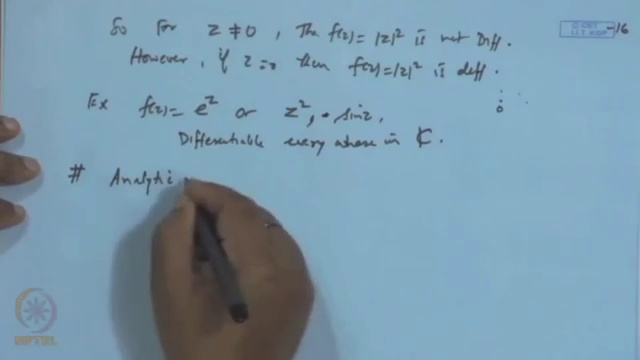 So For z ≠ 0, The f(z) = |z|² is not Diff.
However, if z = 0 then f(z) = |z|² is diff.
Ex f(z) = e^z or z², sin z,
Differentiable every where in ₵.
# Analytic
-16
NPTEL